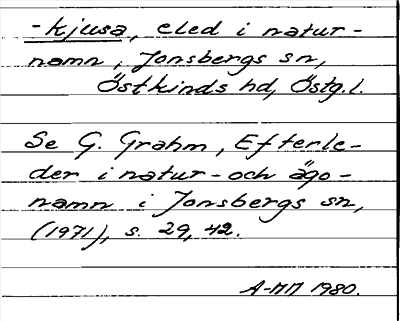 -kjusa, eled i natur-
namn, Jonsbergs sn,
Östkinds hd, Östg.l.
Se G. Grahm, Efterle-
der i natur- och ägo-
namn i Jonsbergs sn,
(1971), s. 29, 42.
A-MM 1980.